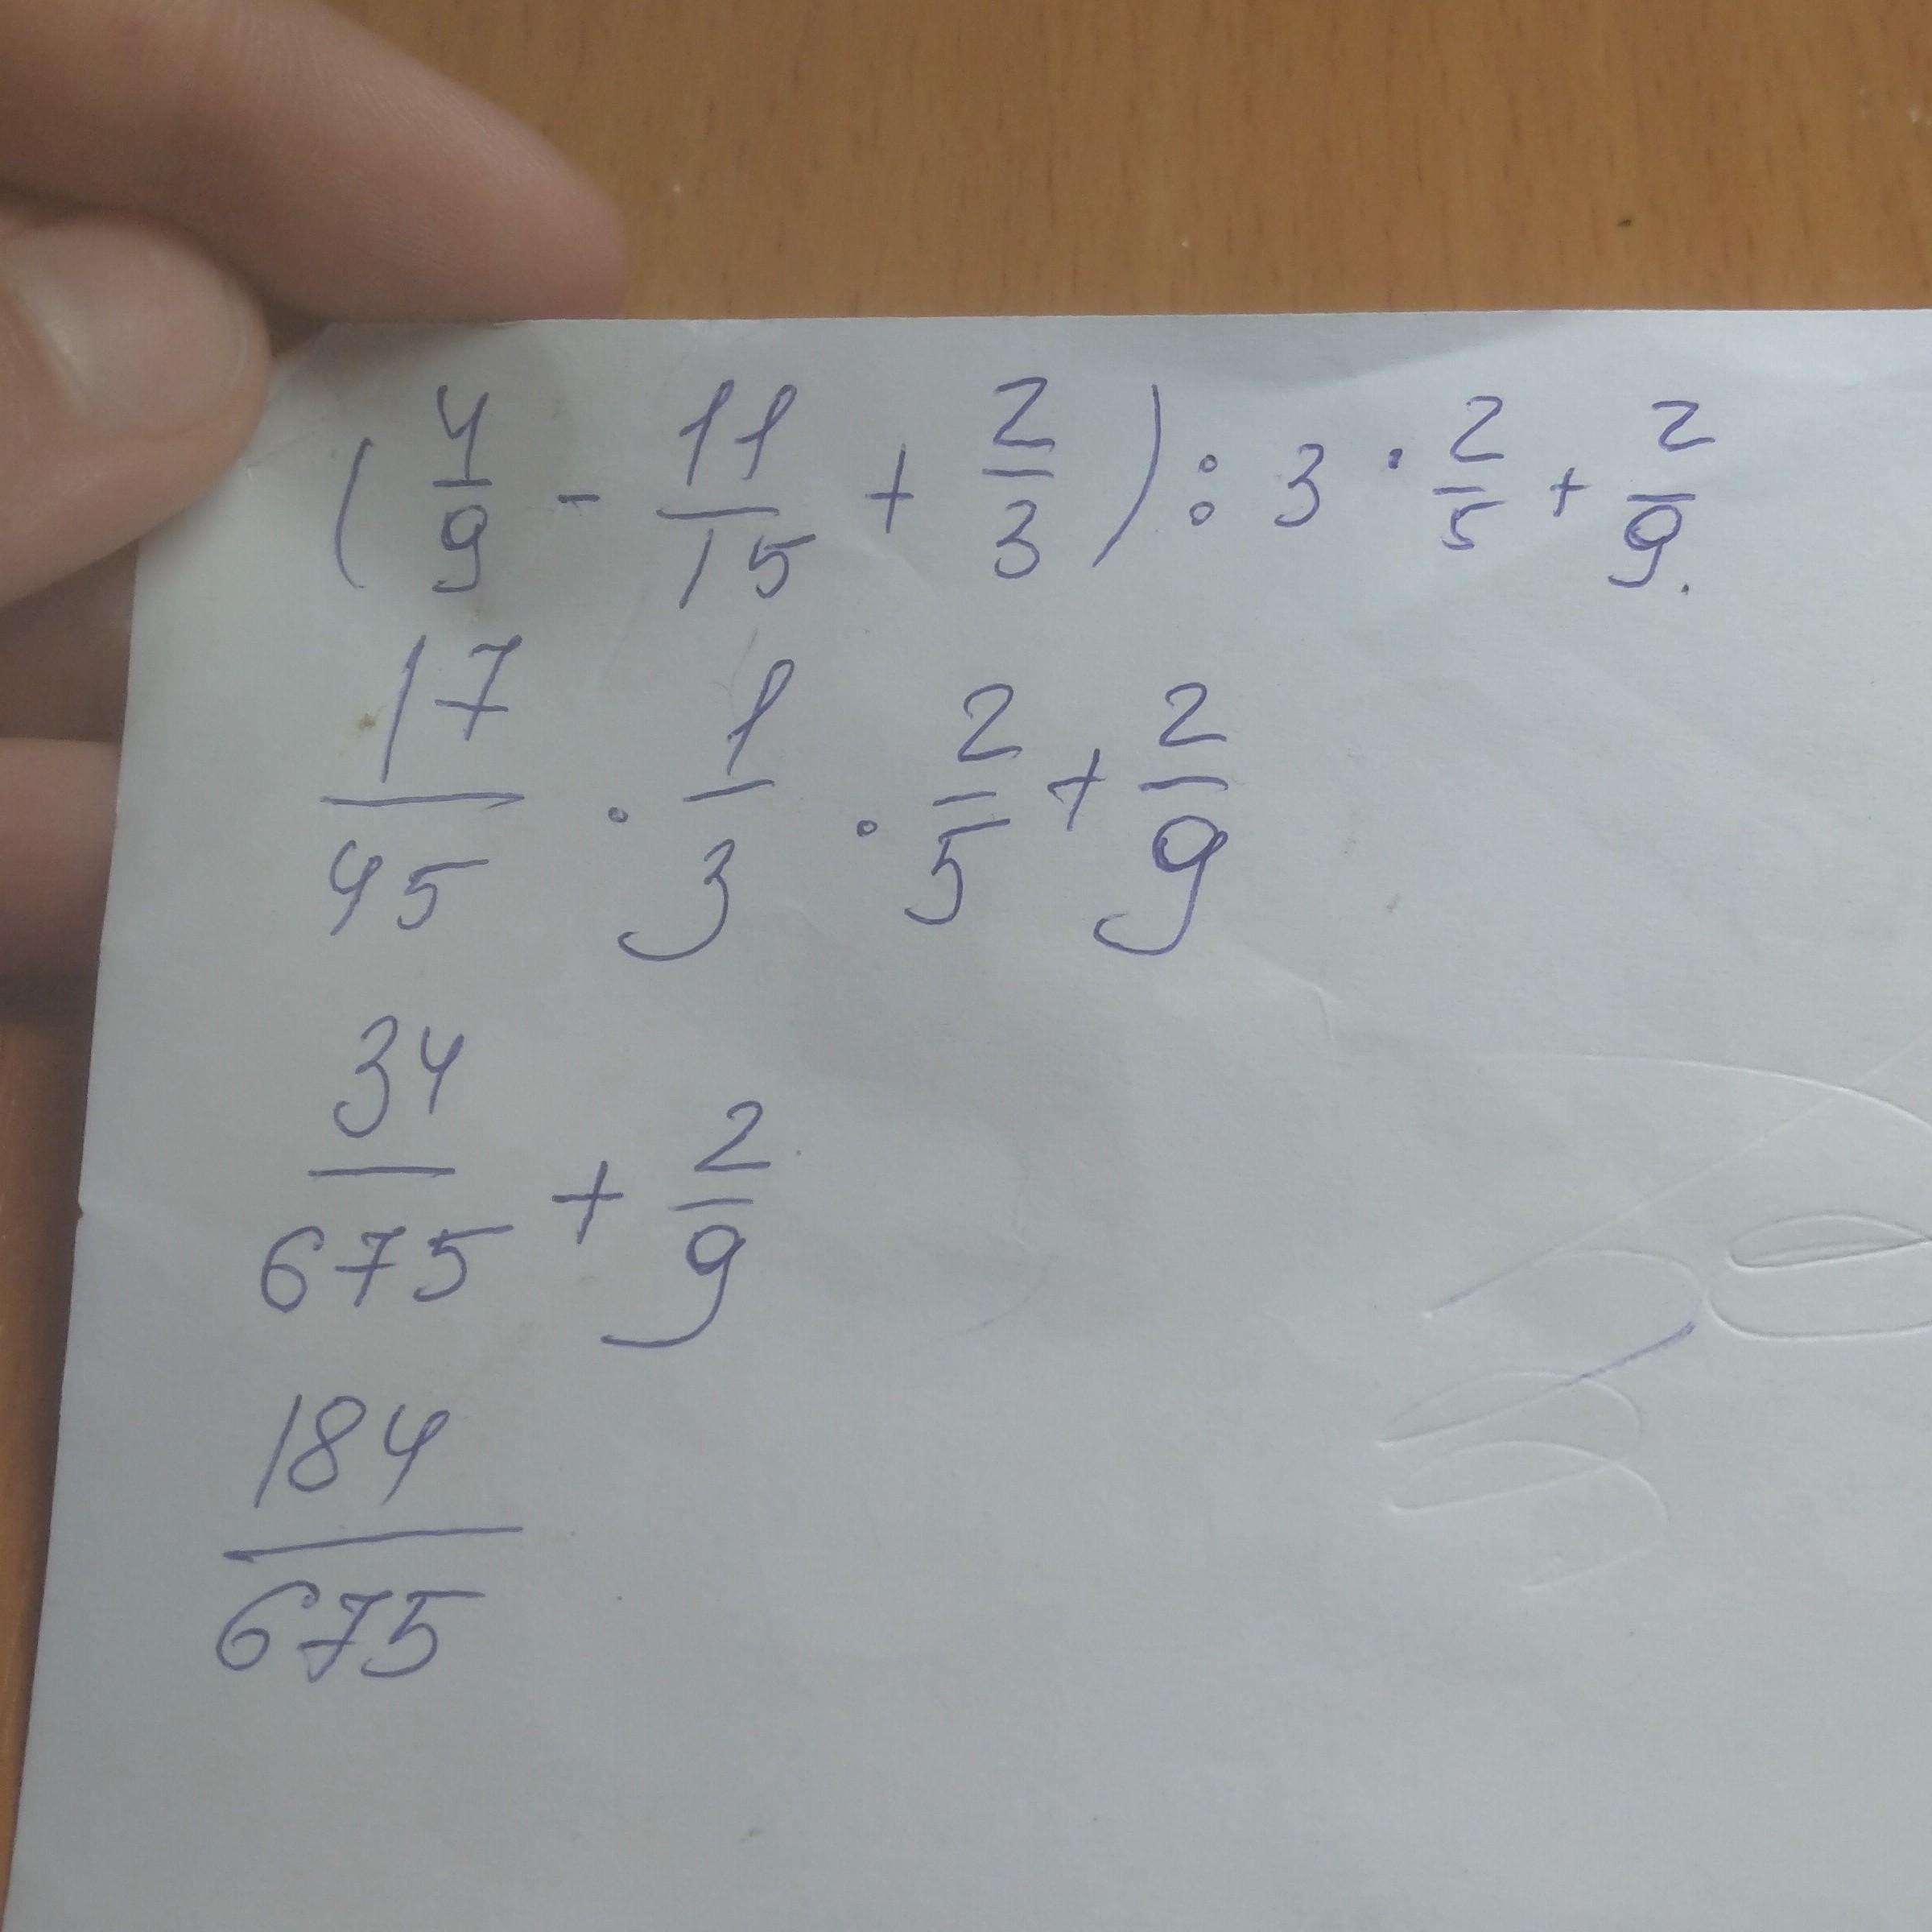 (4/9 - 11/15 + 2/3) : 3 · 2/5 + 2/9.
17/45 · 1/3 · 2/5 + 2/9
34/675 + 2/9
184/675